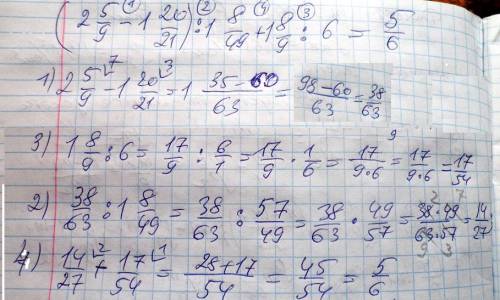 (2 5/9 - 1 20/21) : 1 8/49 + 1 8/9 : 6 = 5/6
1) 2 5/9 - 1 20/21 = 1 (35-60)/63 = (98-60)/63 = 38/63
3) 1 8/9 : 6 = 17/9 : 6/1 = 17/9 · 1/6 = 17/(9·6) = 17/(9·6) = 17/54
2) 38/63 : 1 8/49 = 38/63 : 57/49 = 38/63 · 49/57 = (38·49)/(63·57) = 14/27
4) 14/27 + 17/54 = (28+17)/54 = 45/54 = 5/6